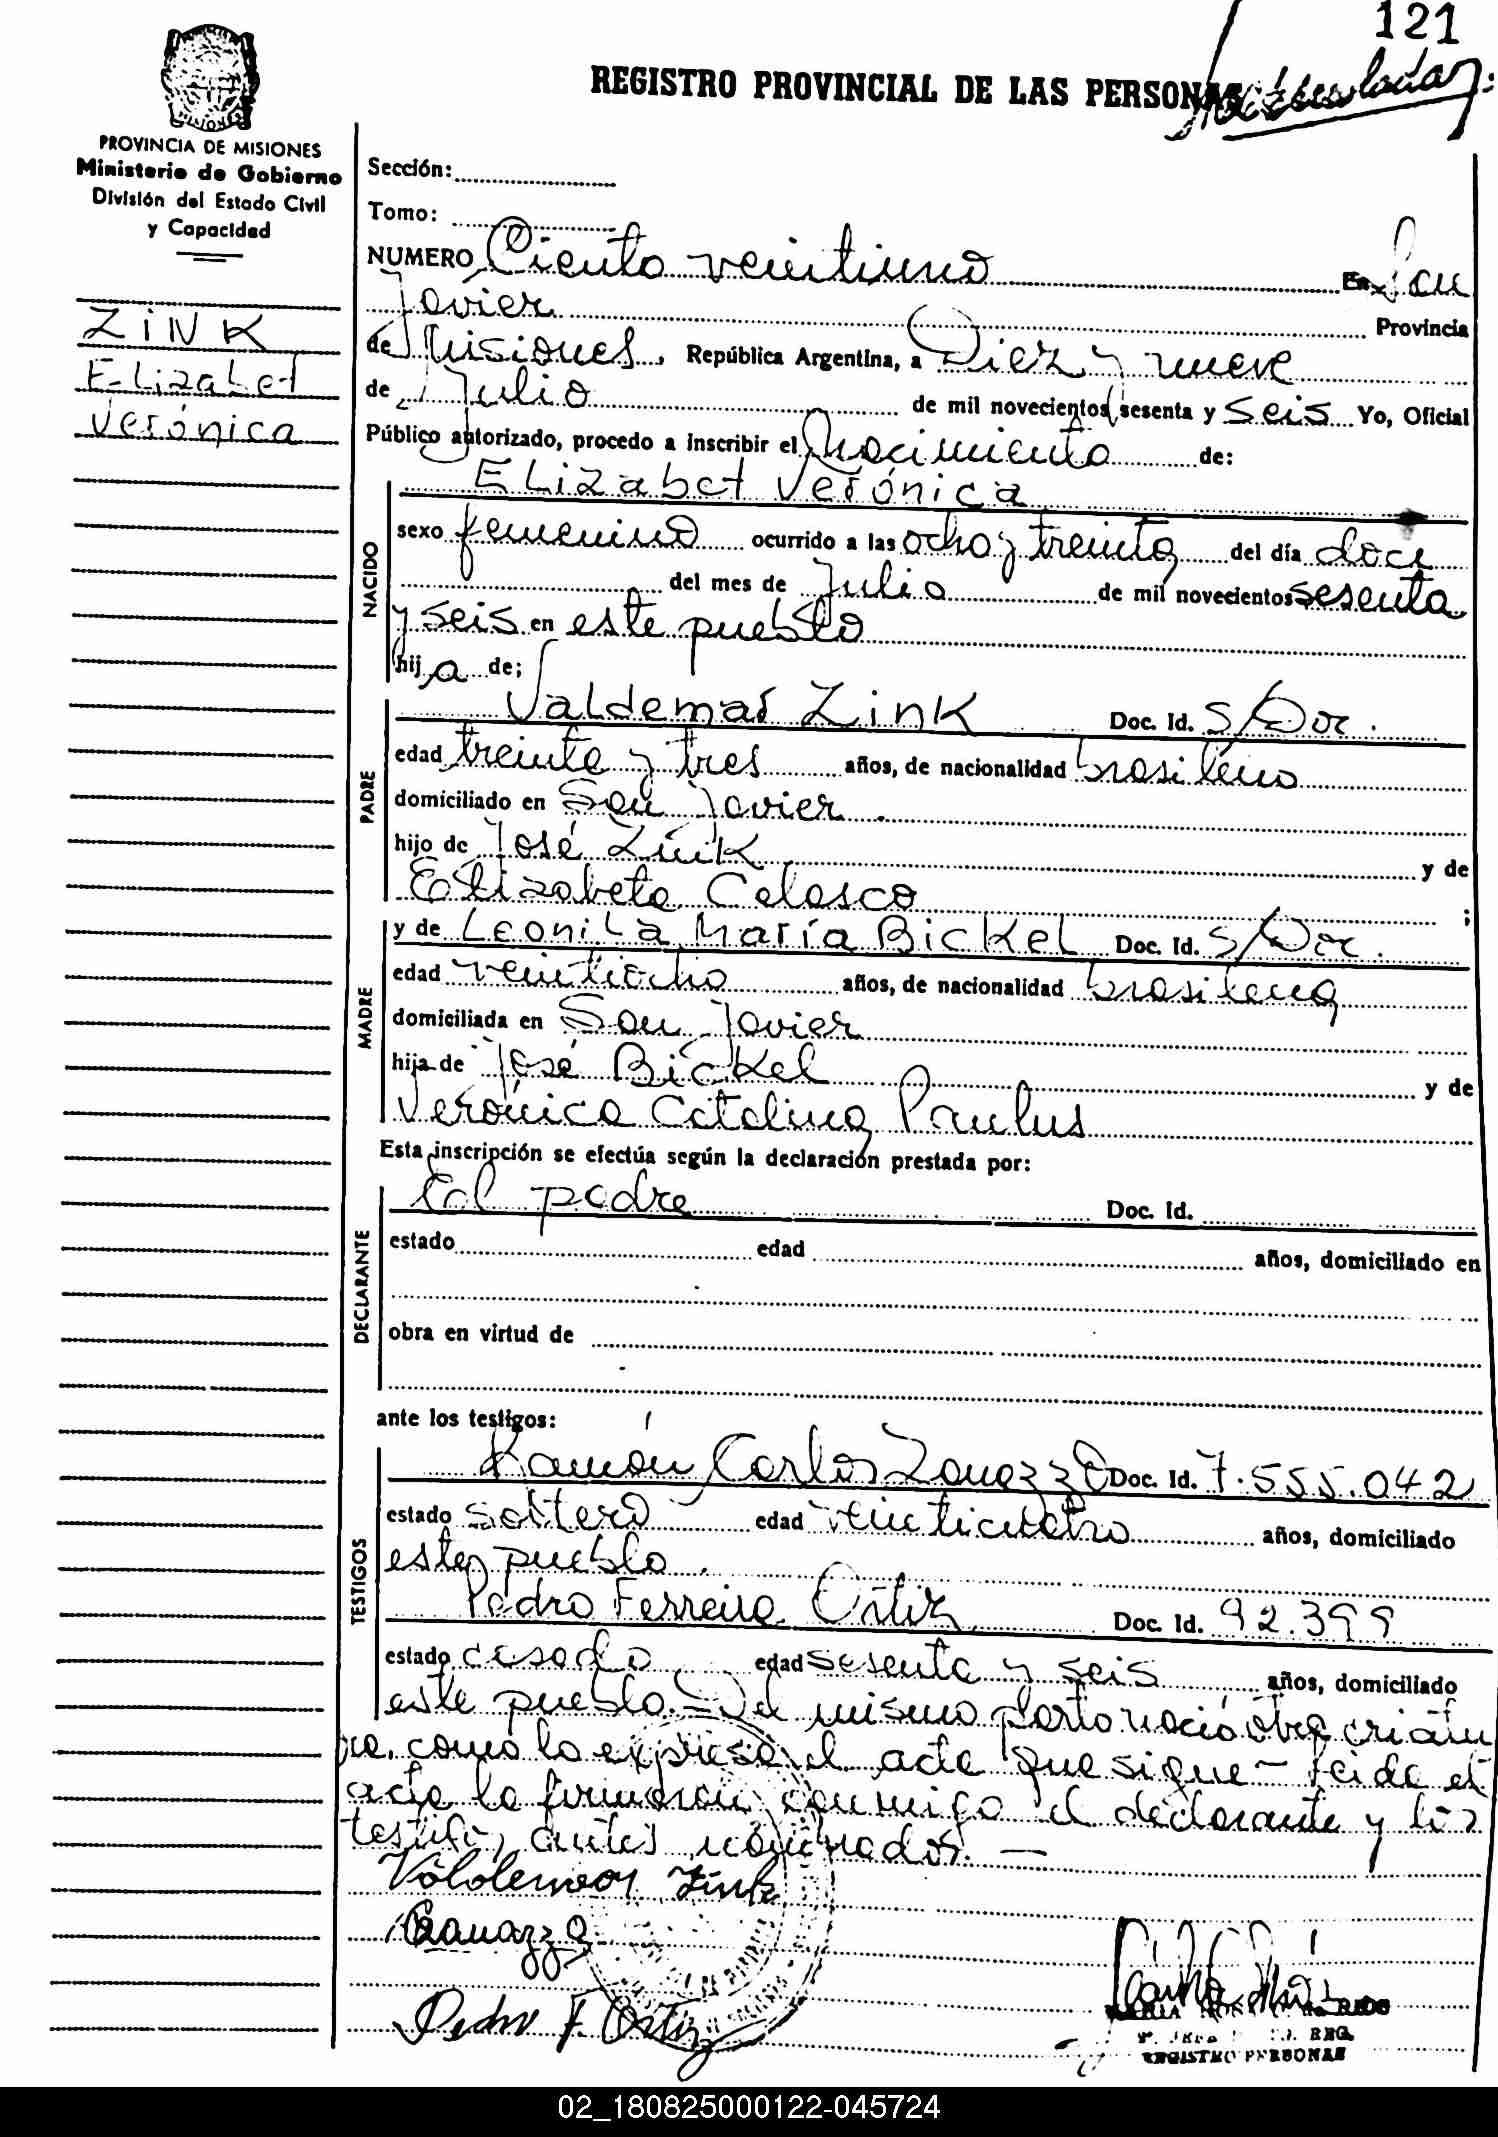 121
REGISTRO PROVINCIAL DE LAS PERSONAS
PROVINCIA DE MISIONES
Ministerio de Gobierno
División del Estado Civil
y Capacidad
ZiNK
ELizabet
Verónica
Sección:
Tomo:
NUMERO Ciento veintiuno En San
Javier Provincia
de Misiones, República Argentina, a Diez y nueve
de Julio de mil novecientos sesenta y seis Yo, Oficial
Público autorizado, procedo a inscribir el Nacimiento de:
ELizabet Verónica
NACIDO
sexo femenino ocurrido a las ocho y treinta del día doce
del mes de Julio de mil novecientos sesenta
y seis en este pueblo
hija de;
PADRE
Valdemar Zink Doc. Id. S/Doc.
edad treinta y tres años, de nacionalidad brasileño
domiciliado en San Javier.
hijo de José Zink y de
Elizabeta Colasco ;
MADRE
y de Leonila María Bickel Doc. Id. S/Doc.
edad veintiocho años, de nacionalidad brasileña
domiciliada en San Javier
hija de José Bickel y de
Verónica Catalina Paulus
Esta inscripción se efectúa según la declaración prestada por:
DECLARANTE
El padre Doc. Id.
estado edad años, domiciliado en
obra en virtud de
ante los testigos:
TESTIGOS
Ramón Carlos Zanazzo Doc. Id. 7.555.042
estado soltero edad veinticuatro años, domiciliado
este pueblo.
Pedro Ferreira Ortiz Doc. Id. 92.399
estado casado edad sesenta y seis años, domiciliado
este pueblo.- Del mismo parto nació otra criatu
ra, como lo expresa el acta que sigue - Leida el
acta la firmaron conmigo el declarante y los
testigos antes nombrados. —
Valdemar Zink
Zanazzo
Pedro F. Ortiz
RIOS
REG.
REGISTRO PERSONAS
02_180825000122-045724